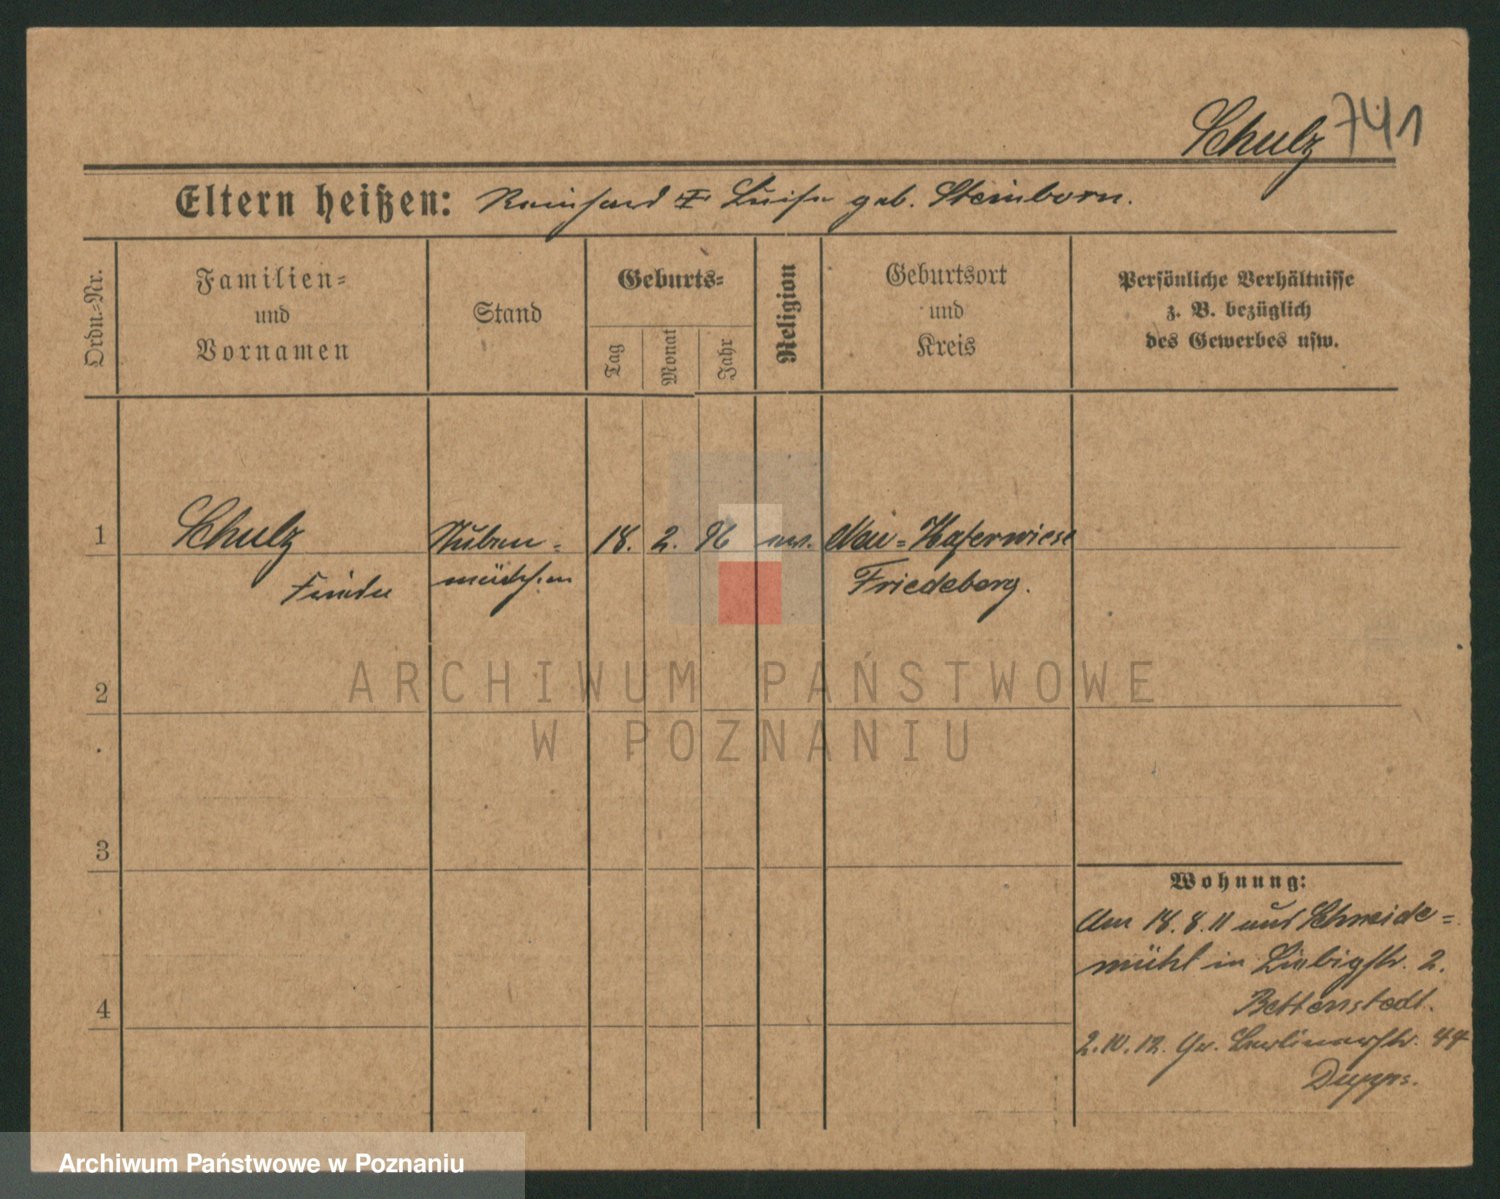 Schulz 741
Eltern heißen: Reinhard Luise geb. Steinborn.
Ordn.-Nr.
Familien-
und
Vornamen
Stand
Geburts-
Tag
Monat
Jahr
Religion
Geburtsort
und
Kreis
Persönliche Verhältnisse
z. B. bezüglich
des Gewerbes usw.
1 Schulz Stuben- 18. 2. 96 ev. Neu-Haferwiese
mädchen Friedeberg.
2
3
4
Wohnung:
Am 18.8.11 aus Schneide-
mühl in Liebigstr. 2.
Bettenstedt.
2.10.12. Gr. Berlinerstr. 44
ARCHIWUM PAŃSTWOWE
W POZNANIU
Archiwum Państwowe w Poznaniu